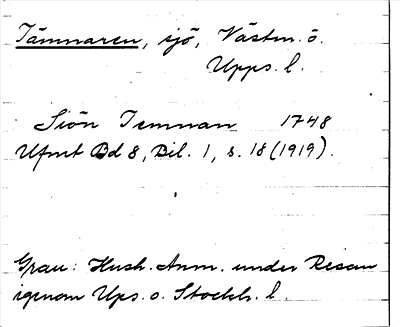 Tämnaren, sjö, Västm. ö.
Upps. l.
Siön Temnan 1748
Ufmt Bd 8, Bil. 1, s. 18 (1919).
Grau: Hush. Anm. under Resan
igenom Ups. o. Stockh. l.